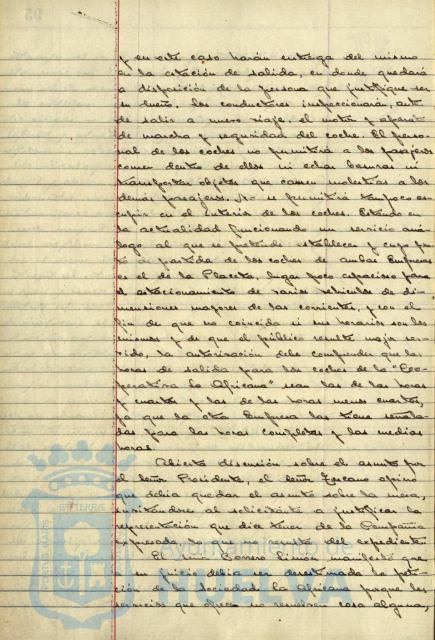 y en este caso harán entrega del mismo
en la estación de salida, en donde quedará
a disposición de la persona que justifique ser
su dueño. Los conductores inspeccionarán, antes
de salir a nuevo viaje, el motor y aparatos
de marcha y seguridad del coche. El perso-
nal de los coches no permitirá a los pasajeros
comer dentro de ellos ni echar basuras ni
transportar objetos que causen molestias a los
demás pasajeros. No se permitirá tampoco es-
cupir en el interior de los coches. Estando en
la actualidad funcionando un servicio aná-
logo al que se pretende establecer y cuyo pun-
to de partida de los coches de ambas Empresas
es el de la Placeta, lugar poco espacioso para
el estacionamiento de varios vehículos de di-
mensiones mayores de las corrientes, y con el
fin de que no coincida ni sus horarios son los
mismos y de que el público resulte mejor ser-
vido, la autorización debe comprender que las
horas de salida para los coches de la "Coo-
perativa La Africana" sean las de las horas
y cuartos y las de las horas menos cuartos,
ya que la otra Empresa las tiene señala-
das para las horas completas y las medias
horas.
Abierta discusión sobre el asunto por
el señor Presidente, el señor Toscano opinó
que debía quedar el asunto sobre la mesa,
invitándose al solicitante a justificar la
representación que dice tener de la Compañía
expresada, lo que no resulta del expediente.
El señor Borrero Limón manifestó que
a su juicio debía ser desestimada la peti-
ción de la Sociedad La Africana porque los
servicios que ofrece no resuelven cosa alguna,